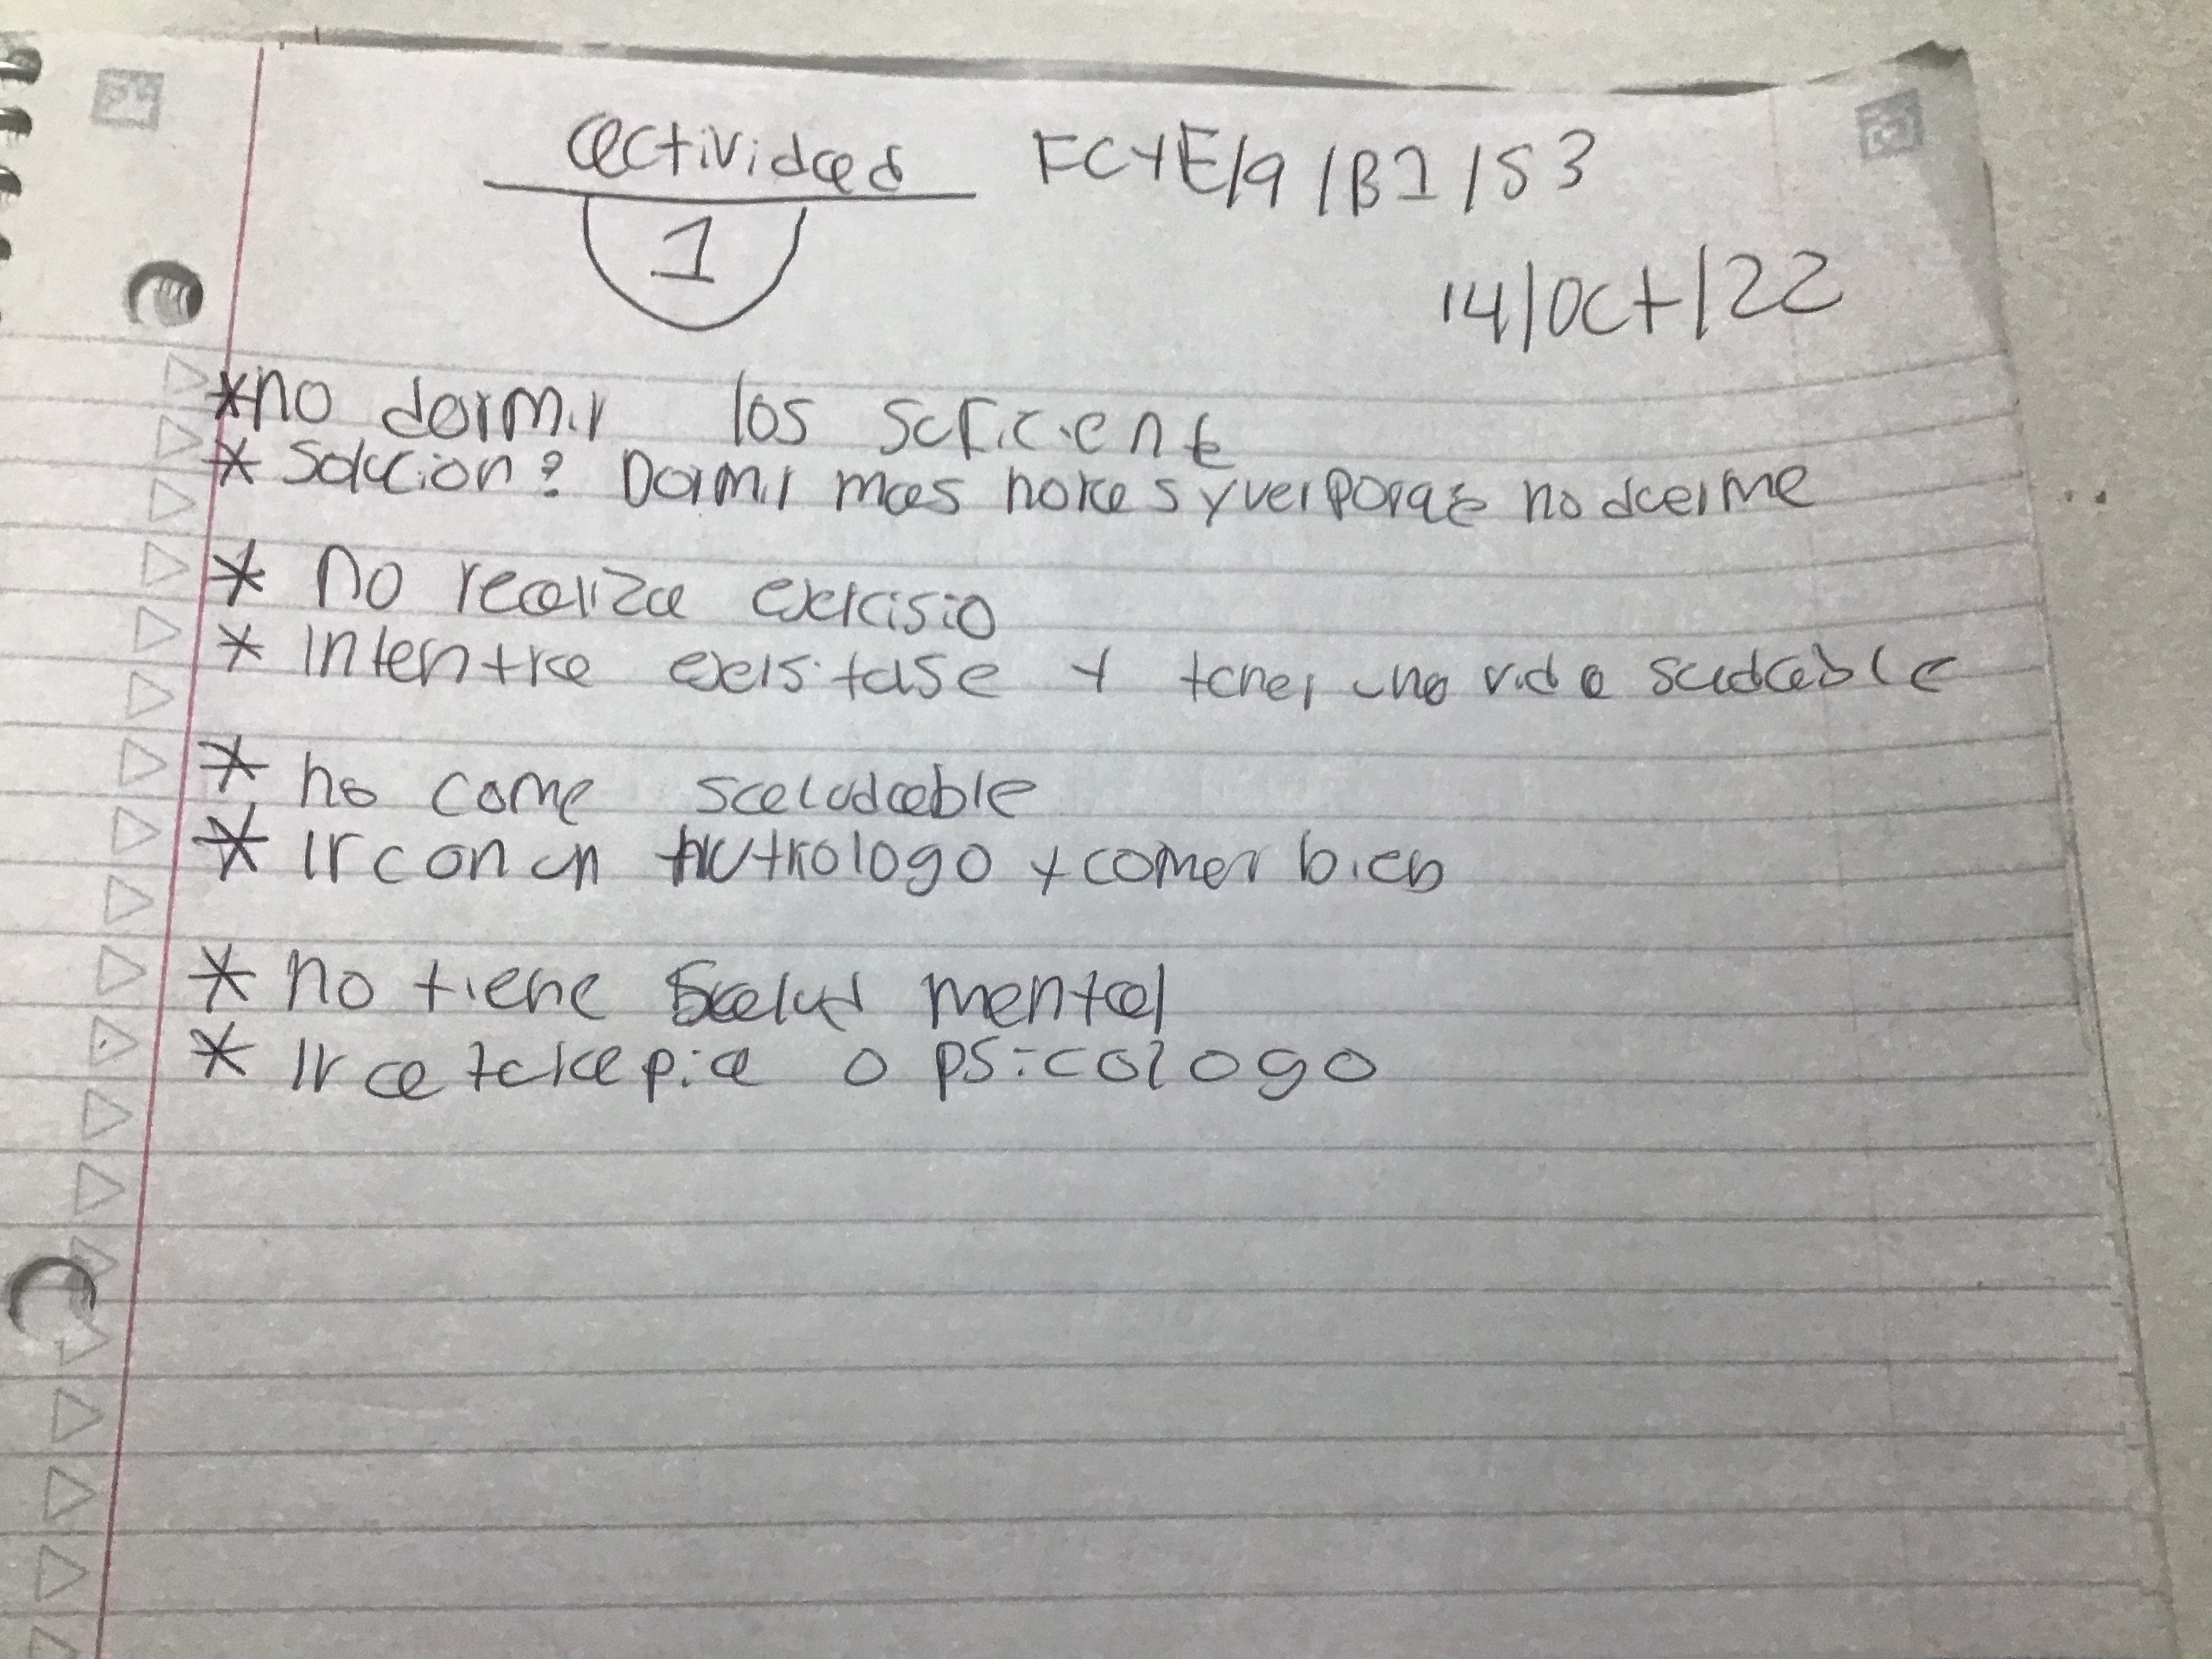 actividad FCYE/9/B1/S3
1
14/Oct/22
*no dormir los suficiente
* Solucion? Dormir mas horas y ver porque no duerme
* no realiza exercisio
* Intentra exersitase y tener una vida saudable
* no come saludable
* Ir con un nutrologo y comer bien
* no tiene Salud mental
* Ir a terapia o psicologo